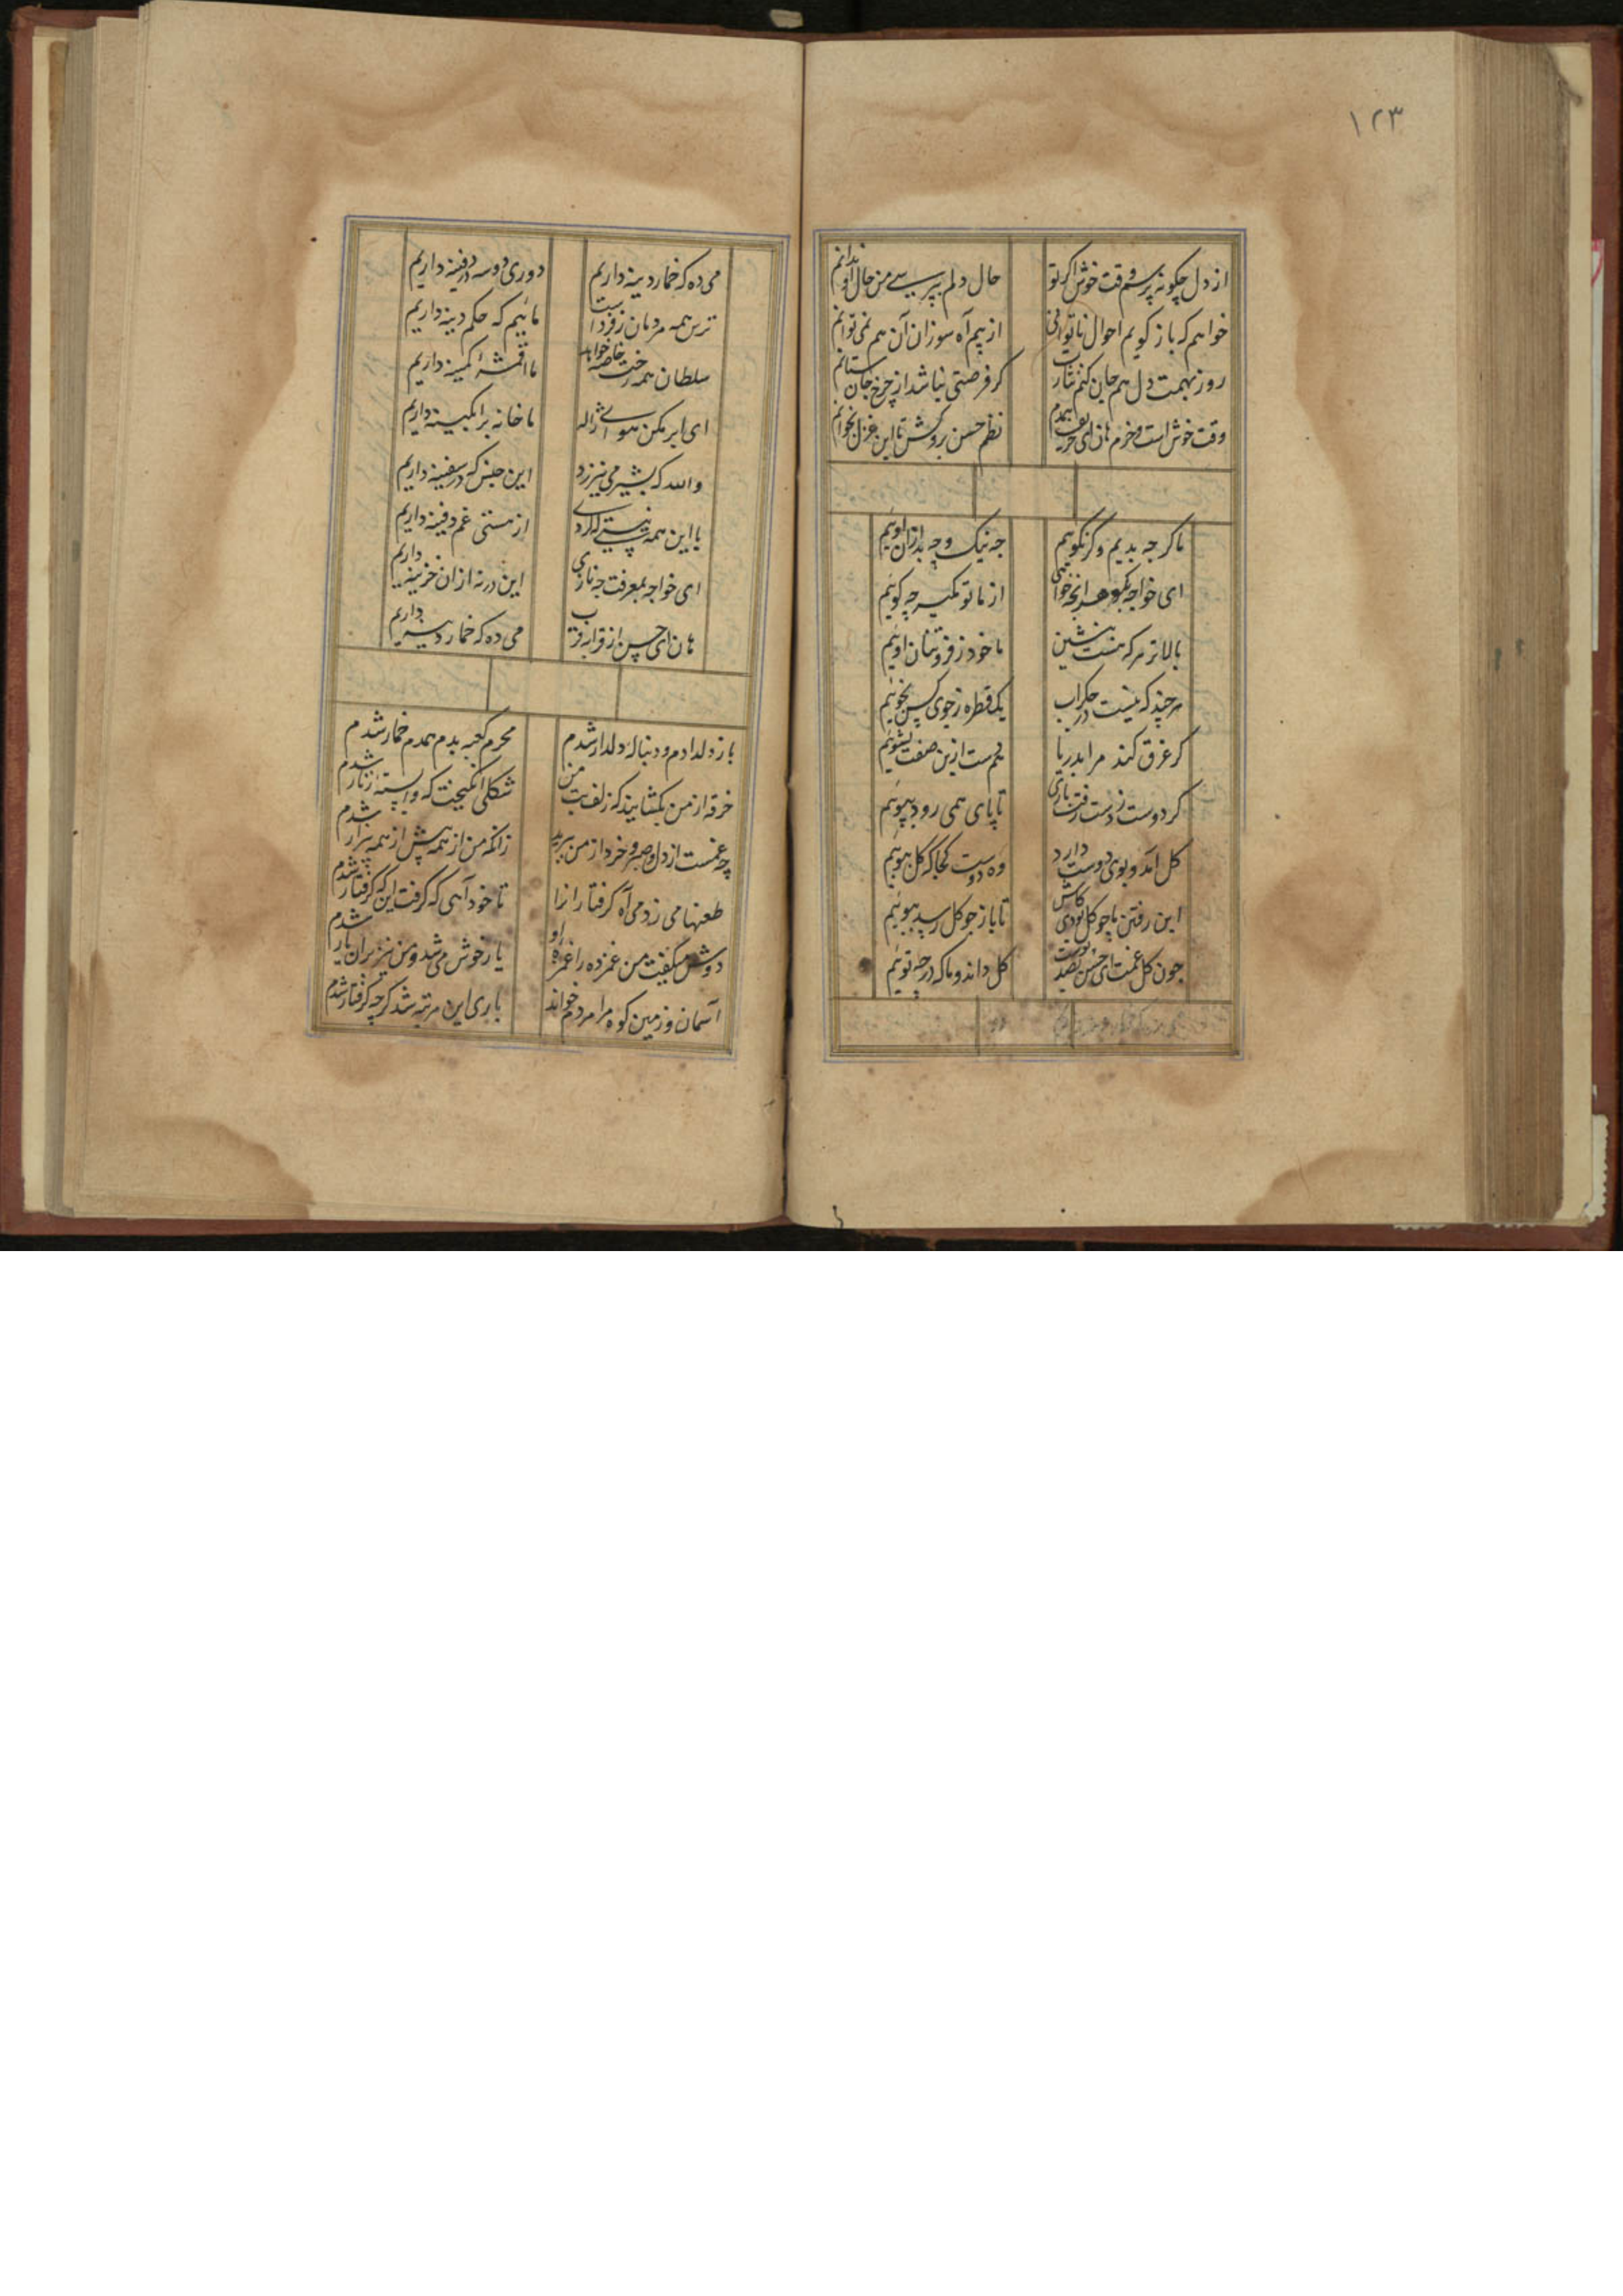 ۱۲۳
از دل چکونه پرسم وقت خوش اگر تو حال دلم بپرسی من حال او ندانم
خواهم که باز کویم احوال ناتوانی از بیم آه سوزان آن هم نمی توانم
روز نهمت دل هم جان کنم نثارت کر فرصتی نباشد از چرخ جان ستانم
وقت خوش است و خرم هان ای حریف همدم نظم حسن بروکش تا این غزل بخوانم
ما کر چه بدیم و کر نکوئیم چه نیک و چه بد ازان اوئیم
ای خواجه بکو هر انچه خواهی از ما تو مکیر چه کوئیم
بالاتر هر که هست بنشین ما خود ز فروتنان اوئیم
هر چند که نیست در جکر آب یک قطره ز جوی کس نجوئیم
کر غرق کند مرا بدریا هم دست ازین صفت نشوئیم
کر دوست ز دست رفت باری تا پای همی رود بپوئیم
کل آمد و بوی دوست دارد وه دوست کجا که کل ببوئیم
این رفتن ما چو کل بودی کاش تا باز چو کل رسد ببوئیم
چون کل غمت ای حسن بصد توست کل داند و ما که در چه توئیم
می ده که خمار دینه داریم دوری دوسه در قنینه داریم
ترس همه مردمان ز فرداست مائیم که حکم دینه داریم
سلطان همه رخت خاصه خواهد ما اقمشه کمینه داریم
ای ابر مکن هوای ژاله ما خانه پر آبکینه داریم
والله که بشیر می نیرزد این جنس که در سفینه داریم
با این همه نیستی که داری از هستی غم دفینه داریم
ای خواجه بمعرفت چه نازی این در نه ازان خزینه داریم
هان ای حسن از قرابه قرب می ده که خمار دینه داریم
باز دل دادم و دنباله دلدار شدم محرم کعبه بدم همدم خمار شدم
خرقه از من بکشایند که زلف بت من شکلی انکیخت که وابسته زنار شدم
چه غمست از دل و صبر و خرد از من ببرید زانکه من از همه پیش از همه بیزار شدم
طعنها می زدمی آه کرفتار انرا تا خود آهی که کرفت این که کرفتار شدم
دوش میکفت من غمزده را غمزه او یار خوش می شد و من نیز بران یار شدم
آسمان و زمین کوه مرا مردم خواند باری این مرتبه شد کر چه کرفتار شدم